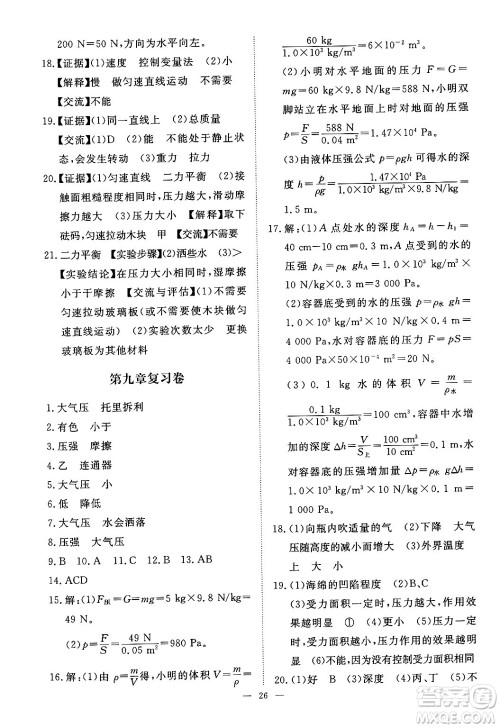 200 N=50 N,方向为水平向左。
18.【证据】(1)速度 控制变量法 (2)小
【解释】慢 做匀速直线运动 不需要
【交流】不能
19.【证据】(1)同一直线上 (2)大小
【交流】(1)D (2)能 不能处于静止状态,会发生转动 (3)重力 拉力
20.【证据】(1)匀速直线 二力平衡 (2)接触面粗糙程度相同时,压力越大,滑动摩擦力越大 (3)木块大小不变 取下砝码,匀速拉动木块 甲 【交流】不需要
21.二力平衡 【实验步骤】(2)洒些水 (3)>
【实验结论】在压力大小相同时,湿摩擦小于干摩擦 【交流与评估】(1)不需要匀速拉动玻璃板(或不需要使木块做匀速直线运动) (2)实验次数太少 更换玻璃板为其他材料
第九章复习卷
1.大气压 托里拆利
2.有色 小于
3.压强 摩擦
4.乙 连通器
5.大气压 小
6.低 降低
7.大气压 水会洒落
8.压强 大气压
9.B 10.A 11.B 12.B 13.A
14.ACD
15.解:(1)F预=G=mg=5 kg×9.8 N/kg=49 N。
(2)p=F/S=49 N/0.05 m²=980 Pa。
16.解:(1)由ρ=m/V得,小明的体积V=m/ρ=
60 kg/1.0×10³ kg/m³=6×10⁻² m³。
(2)小明对水平地面的压力F=G=mg=60 kg×9.8 N/kg=588 N,小明双脚站立在水平地面上时对地面的压强p=F/S=588 N/0.04 m²=1.47×10⁴ Pa。
(3)由液体压强公式p=ρgh可得水的深度h=p/ρg=1.47×10⁴ Pa/1.0×10³ kg/m³×9.8 N/kg=1.5 m。
17.解:(1)A点处水的深度hA=h-h₁=40 cm-10 cm=30 cm=0.3 m,A点受到水的压强pA=ρ水ghA=1.0×10³ kg/m³×10 N/kg×0.3 m=3 000 Pa。
(2)容器底所受的水的压强p=ρ水gh=1.0×10³ kg/m³×10 N/kg×0.4 m=4 000 Pa,容器底所受水的压力F=pS=4 000 Pa×20×10⁻⁴ m²=8 N。
(3)0.1 kg水的体积V=m/ρ水=0.1 kg/1.0×10³ kg/m³=10⁻⁴ m³=100 cm³,容器中水增加的深度Δh=V/S上=100 cm³/10 cm²=10 cm=0.1 m,容器底增加的压强Δp=ρ水gΔh=1.0×10³ kg/m³×10 N/kg×0.1 m=1 000 Pa。
18.(1)向瓶内吹适量的气 (2)下降 大气压随高度的减小而增大 (3)外界温度 上 大 小
19.(1)海绵的凹陷程度 (2)甲、乙
(3)受力面积一定时,压力越大,压力的作用效果越明显 (4)不可靠,压力的作用效果还与受力面积有关,压力大,压力的作用效果不一定越明显 (5)没有控制受力面积相同
20.(1)好 (2)深度 (3)丙、丁 (4)不能
· 26 ·